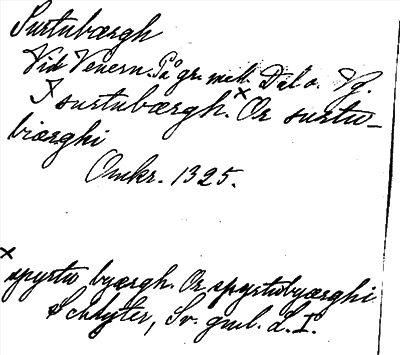 Surtubærgh
Vid Venern. På gr. mell. Dal o. Vg.
I surtubærgh.× Or surtu-
biærghi
Omkr. 1325.
× spyrtu byærgh. Or spyrtubyærghi
Schlyter, Sv. gml. L. I.